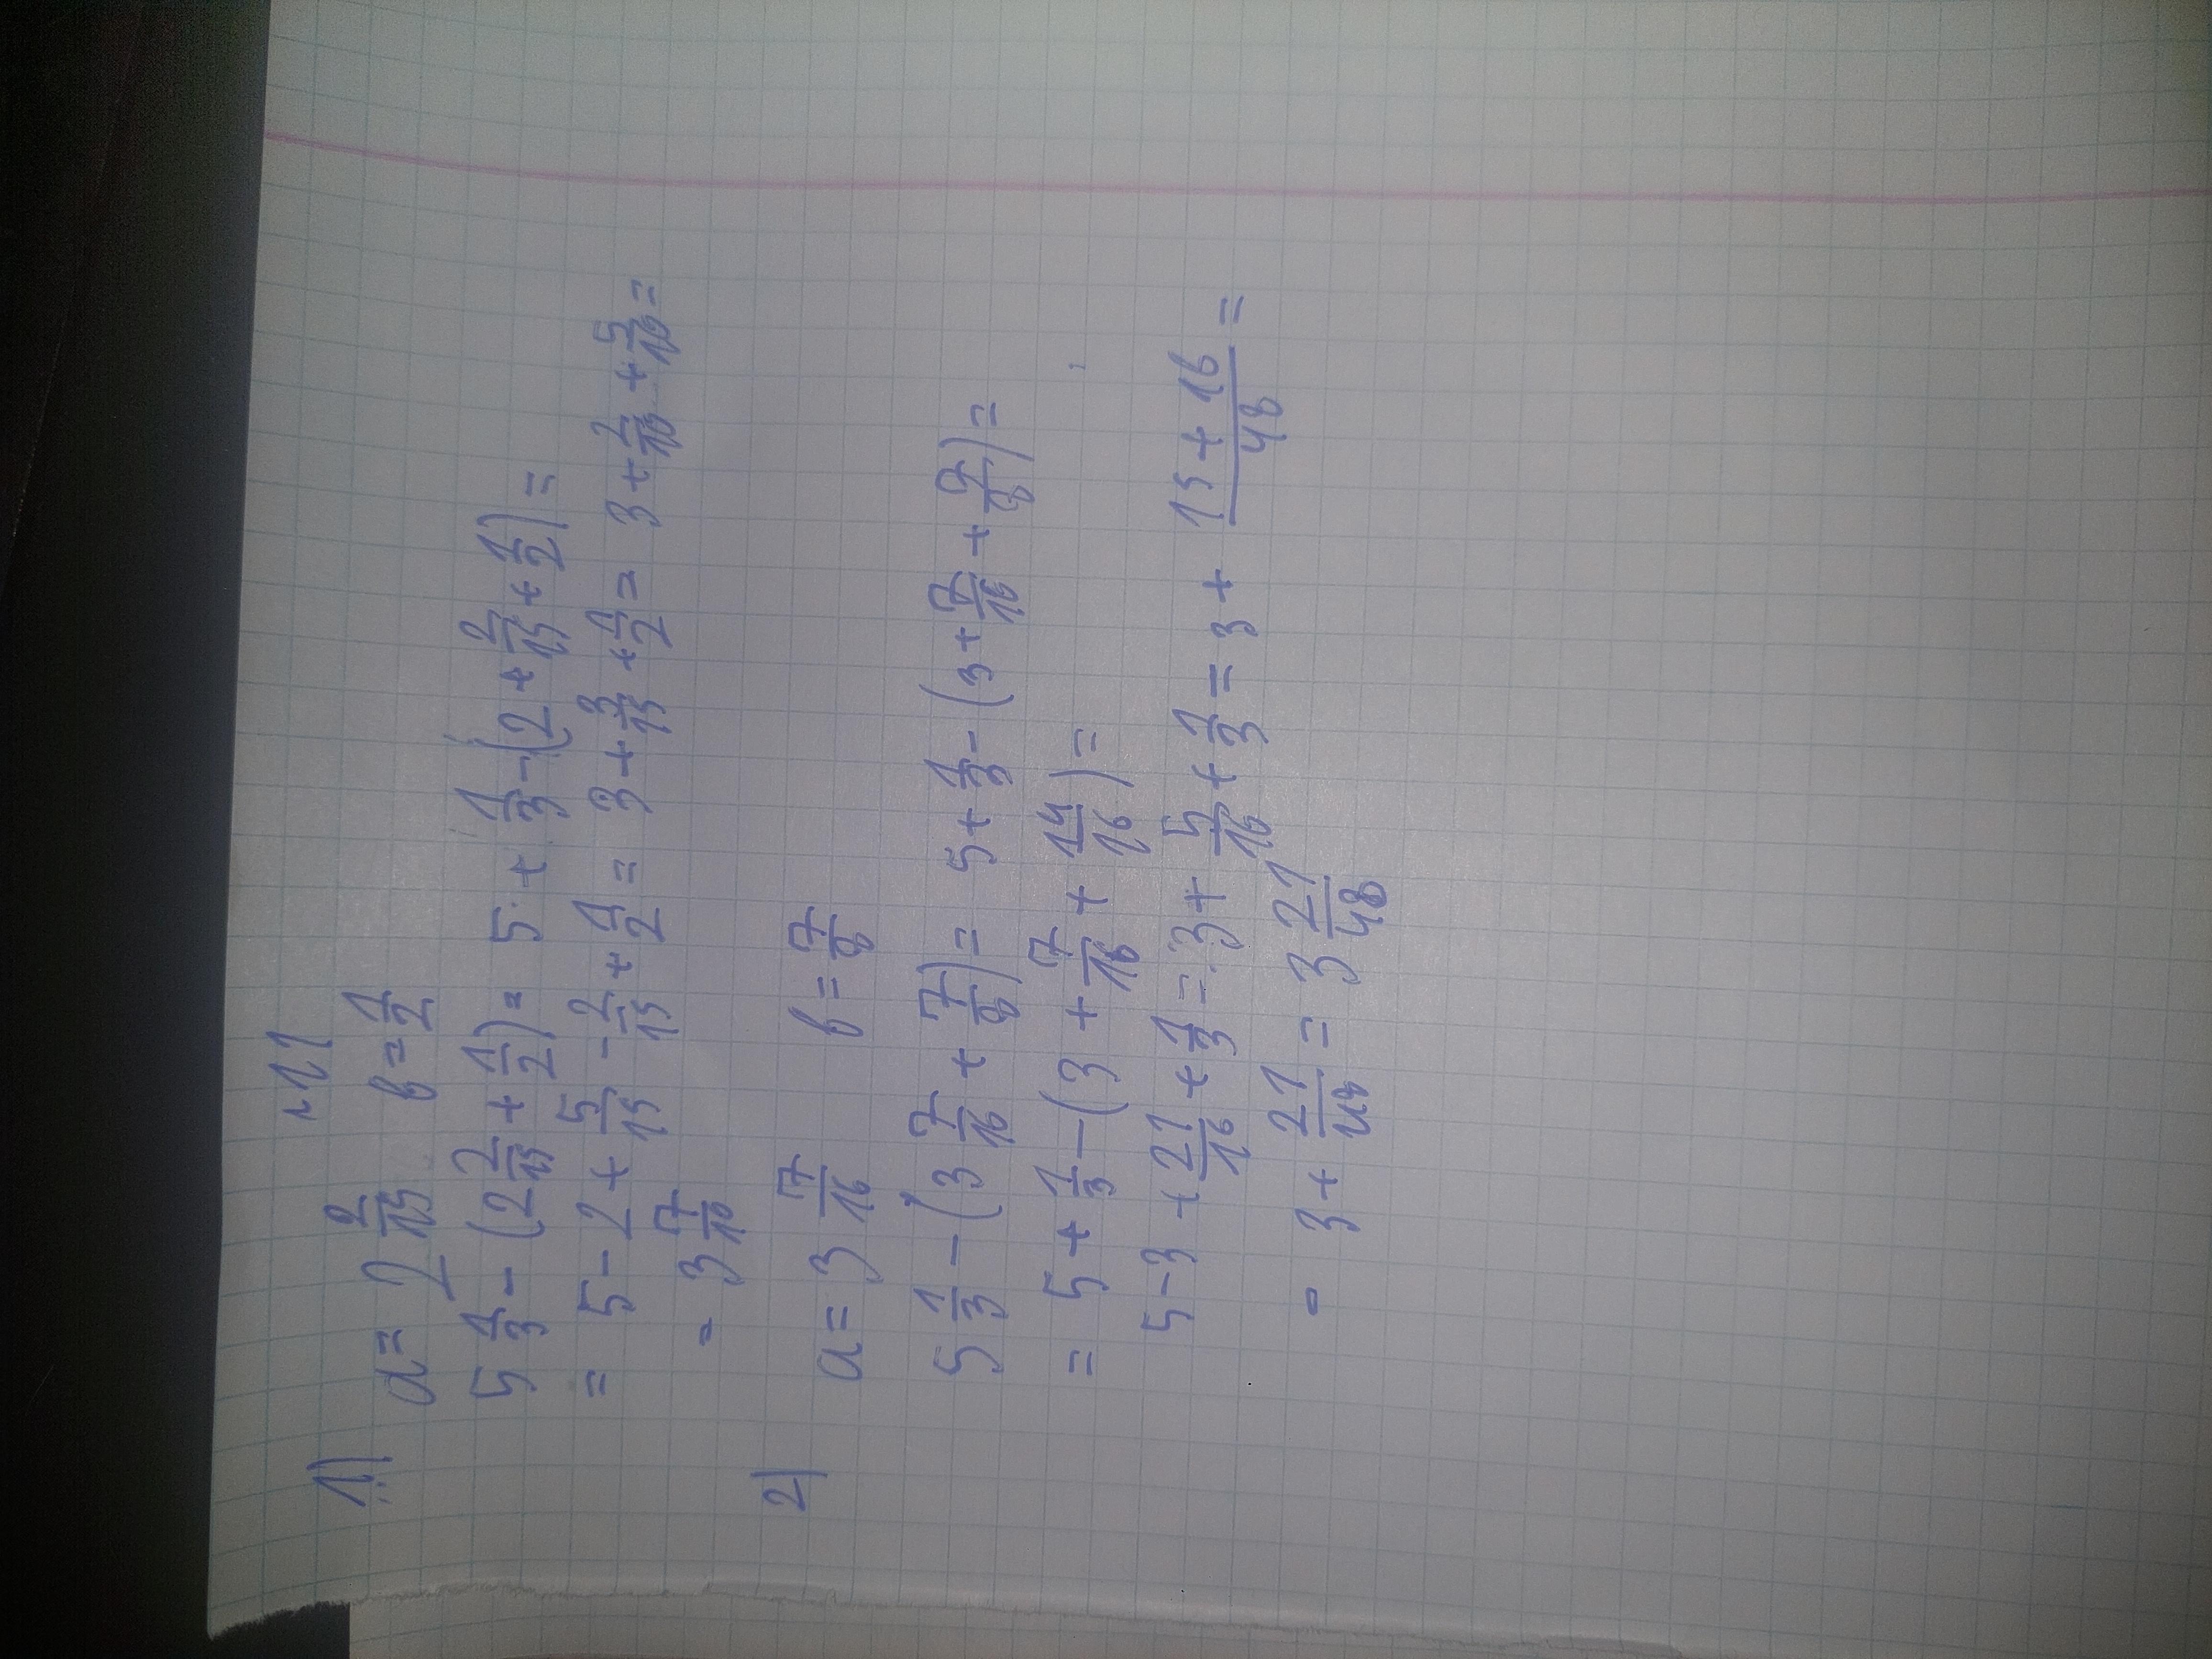 №1
1) a = 2 2/15 b = 1/2
5 1/3 - (2 2/15 + 1/2) = 5 + 1/3 - (2 + 2/15 + 1/2) =
= 5 - 2 + 5/15 - 2/15 + 1/2 = 3 + 3/15 + 1/2 = 3 + 2/10 + 5/10 =
= 3 7/10
2) a = 3 7/16 b = 7/8
5 1/3 - (3 7/16 + 7/8) = 5 + 1/3 - (3 + 7/16 + 7/8) =
= 5 + 1/3 - (3 + 7/16 + 14/16) =
5 - 3 + 21/16 + 1/3 = 3 + 5/16 + 1/3 = 3 + (15 + 16)/48 =
= 3 + 21/48 = 3 21/48